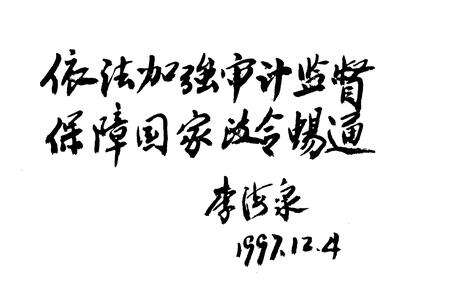 依法加强审计监督
保障国家政令畅通
李海泉
1997.12.4